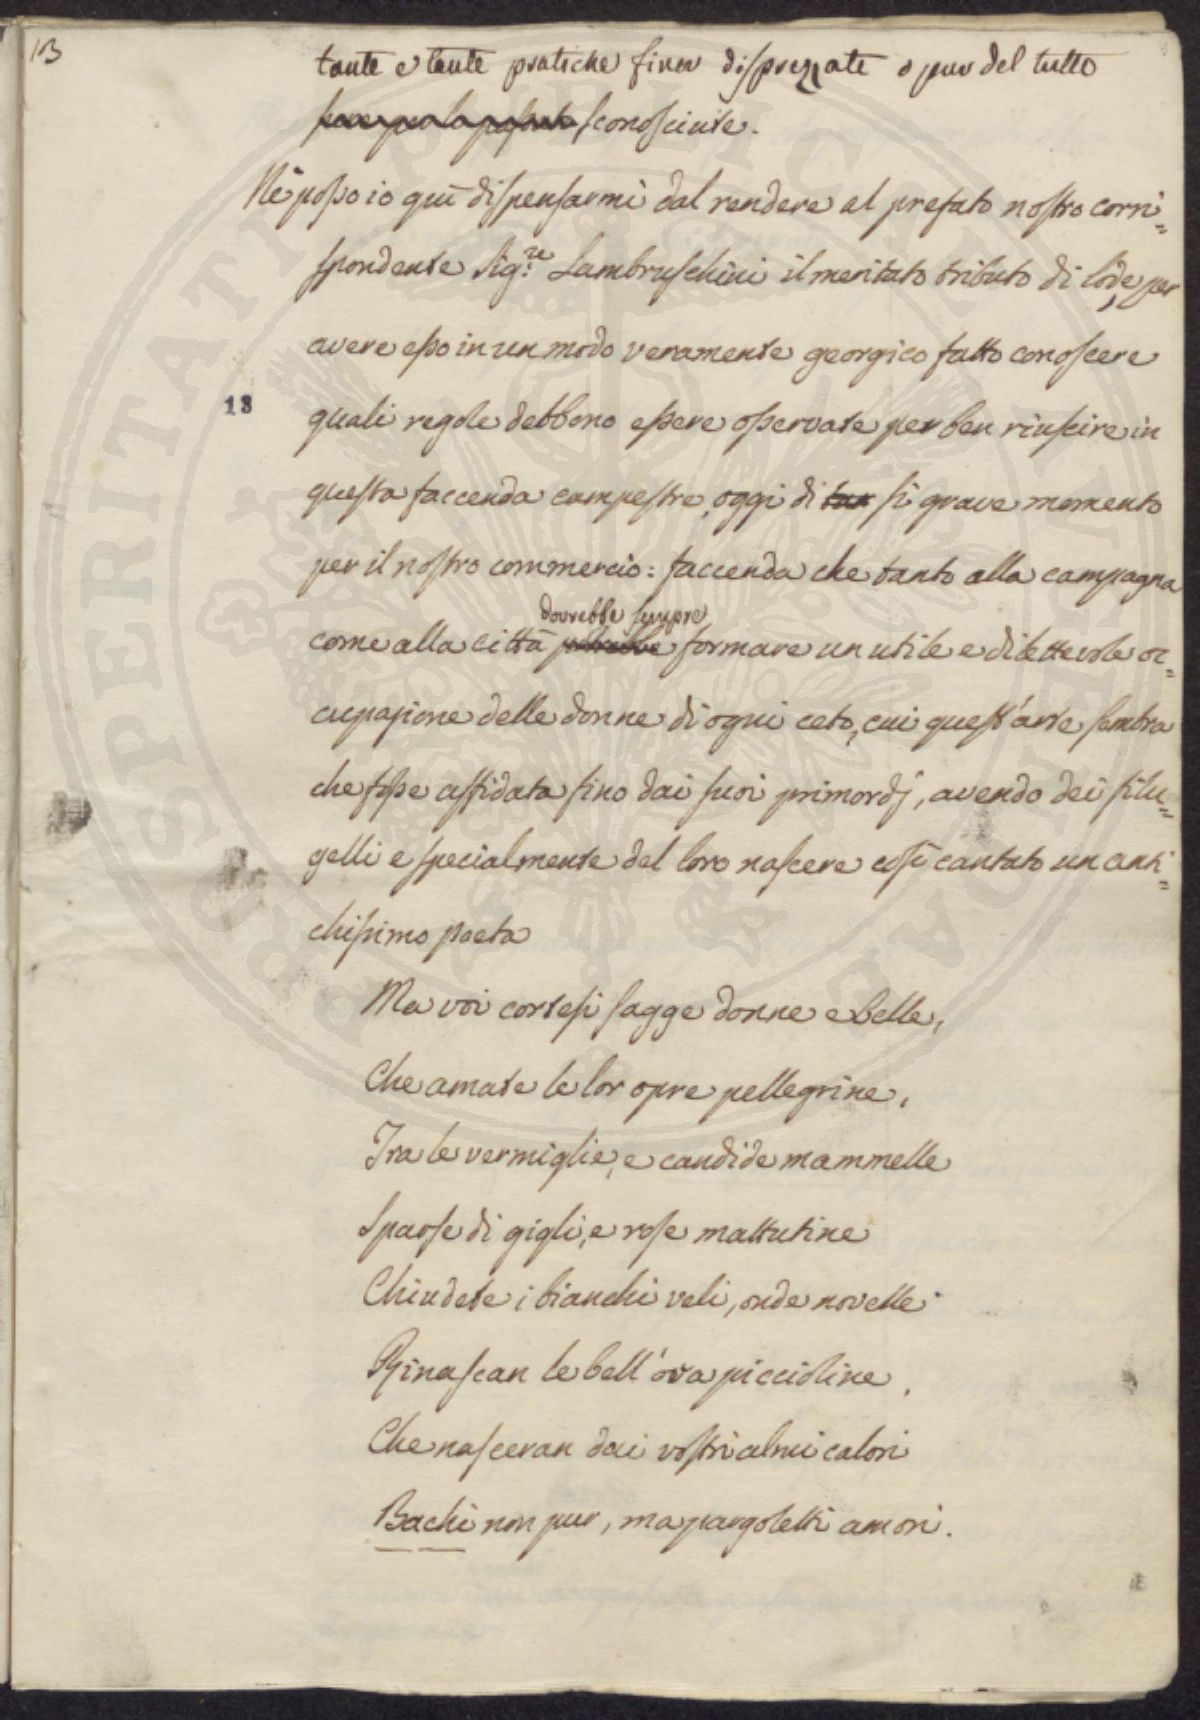 13
tante e tante pratiche finor disprezzate o pur del tutto
sconosciute.
Nè posso io quì dispensarmi dal rendere al prefato nostro corri=
spondente Sig.re Lambruschini il meritato tributo di lode, per
avere esso in un modo veramente georgico fatto conoscere
13
quali regole debbono essere osservate per ben riuscire in
questa faccenda campestre, oggi di tan sì grave momento
per il nostro commercio: faccenda che tanto alla campagna
dovrebbe sempre
come alla città potrebbe formare un utile e dilettevole oc=
cupazione delle donne di ogni ceto, cui quest'arte sembra
che fosse affidata fino dai suoi primordj, avendo dei filu=
gelli e specialmente del loro nascere così cantato un anti=
chissimo poeta
Ma voi cortesi sagge donne e belle,
Che amate le lor opre pellegrine,
Fra le vermiglie, e candide mammelle
Sparse di gigli, e rose mattutine
Chiudete i bianchi veli, onde novelle
Rinascan le bell'ova piccioline,
Che nasceran dai vostri almi calori
Bachi non pur, ma pargoletti amori.
PROSPERITATI PUBLICAE AUGENDAE